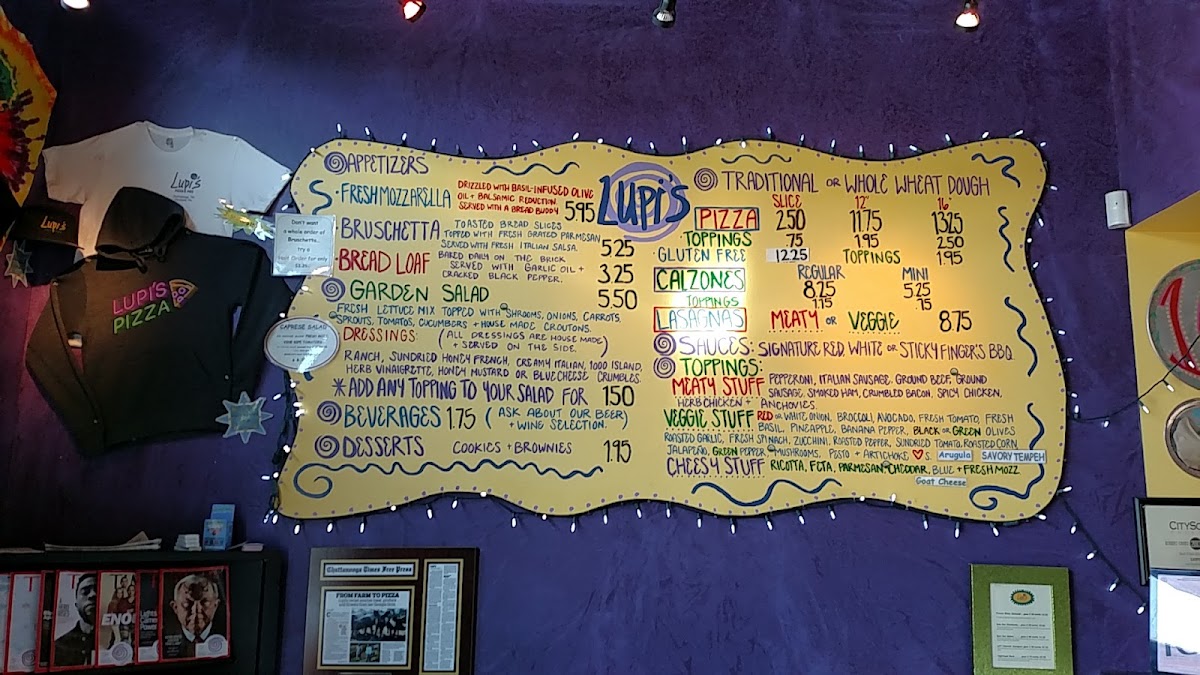 APPETIZERS
FRESH MOZZARELLA
DRIZZLED WITH BASIL-INFUSED OLIVE
OIL + BALSAMIC REDUCTION.
SERVED WITH A BREAD BUDDY
5.95
BRUSCHETTA
TOASTED BREAD SLICES
TOPPED WITH FRESH GRATED PARMESAN
SERVED WITH FRESH ITALIAN SALSA.
5.25
BREAD LOAF
BAKED DAILY ON THE BRICK
SERVED WITH GARLIC OIL +
CRACKED BLACK PEPPER.
3.25
GARDEN SALAD
5.50
FRESH LETTUCE MIX TOPPED WITH SHROOMS, ONIONS, CARROTS,
SPROUTS, TOMATOS, CUCUMBERS + HOUSE MADE CROUTONS.
DRESSINGS: (ALL DRESSINGS ARE HOUSE MADE)
+ SERVED ON THE SIDE.
RANCH, SUNDRIED HONEY FRENCH, CREAMY ITALIAN, 1000 ISLAND,
HERB VINAIGRETTE, HONEY MUSTARD OR BLUE CHEESE CRUMBLES.
*ADD ANY TOPPING TO YOUR SALAD FOR 1.50
BEVERAGES 1.75 (ASK ABOUT OUR BEER)
+ WING SELECTION.
DESSERTS COOKIES + BROWNIES 1.95
LUPI'S
TRADITIONAL OR WHOLE WHEAT DOUGH
SLICE 12" 16"
PIZZA 2.50 11.75 13.25
TOPPINGS .75 1.95 2.50
GLUTEN FREE 12.25 TOPPINGS 1.95
REGULAR MINI
CALZONES 8.25 5.25
TOPPINGS 1.15 .75
LASAGNAS MEATY OR VEGGIE 8.75
SAUCES: SIGNATURE RED, WHITE OR STICKY FINGER'S BBQ
TOPPINGS:
MEATY STUFF PEPPERONI, ITALIAN SAUSAGE, GROUND BEEF, GROUND
SAUSAGE, SMOKED HAM, CRUMBLED BACON, SPICY CHICKEN,
HERB CHICKEN + ANCHOVIES.
VEGGIE STUFF RED OR WHITE ONION, BROCCOLI, AVOCADO, FRESH TOMATO, FRESH
BASIL, PINEAPPLE, BANANA PEPPER, BLACK OR GREEN OLIVES
ROASTED GARLIC, FRESH SPINACH, ZUCCHINI, ROASTED PEPPER, SUNDRIED TOMATO, ROASTED CORN
JALAPEÑO, GREEN PEPPER, MUSHROOMS, PESTO + ARTICHOKE ♥S. Arugula SAVORY TEMPEH
CHEESY STUFF RICOTTA, FETA, PARMESAN, CHEDDAR, BLUE + FRESH MOZZ
Goat Cheese
Don't want
a whole order of
Bruschetta...
try a
Half Order for only
CAPRESE SALAD
Lupi's
Lupi's
LUPI'S
PIZZA
Chattanooga Times Free Press
FROM FARM TO PIZZA